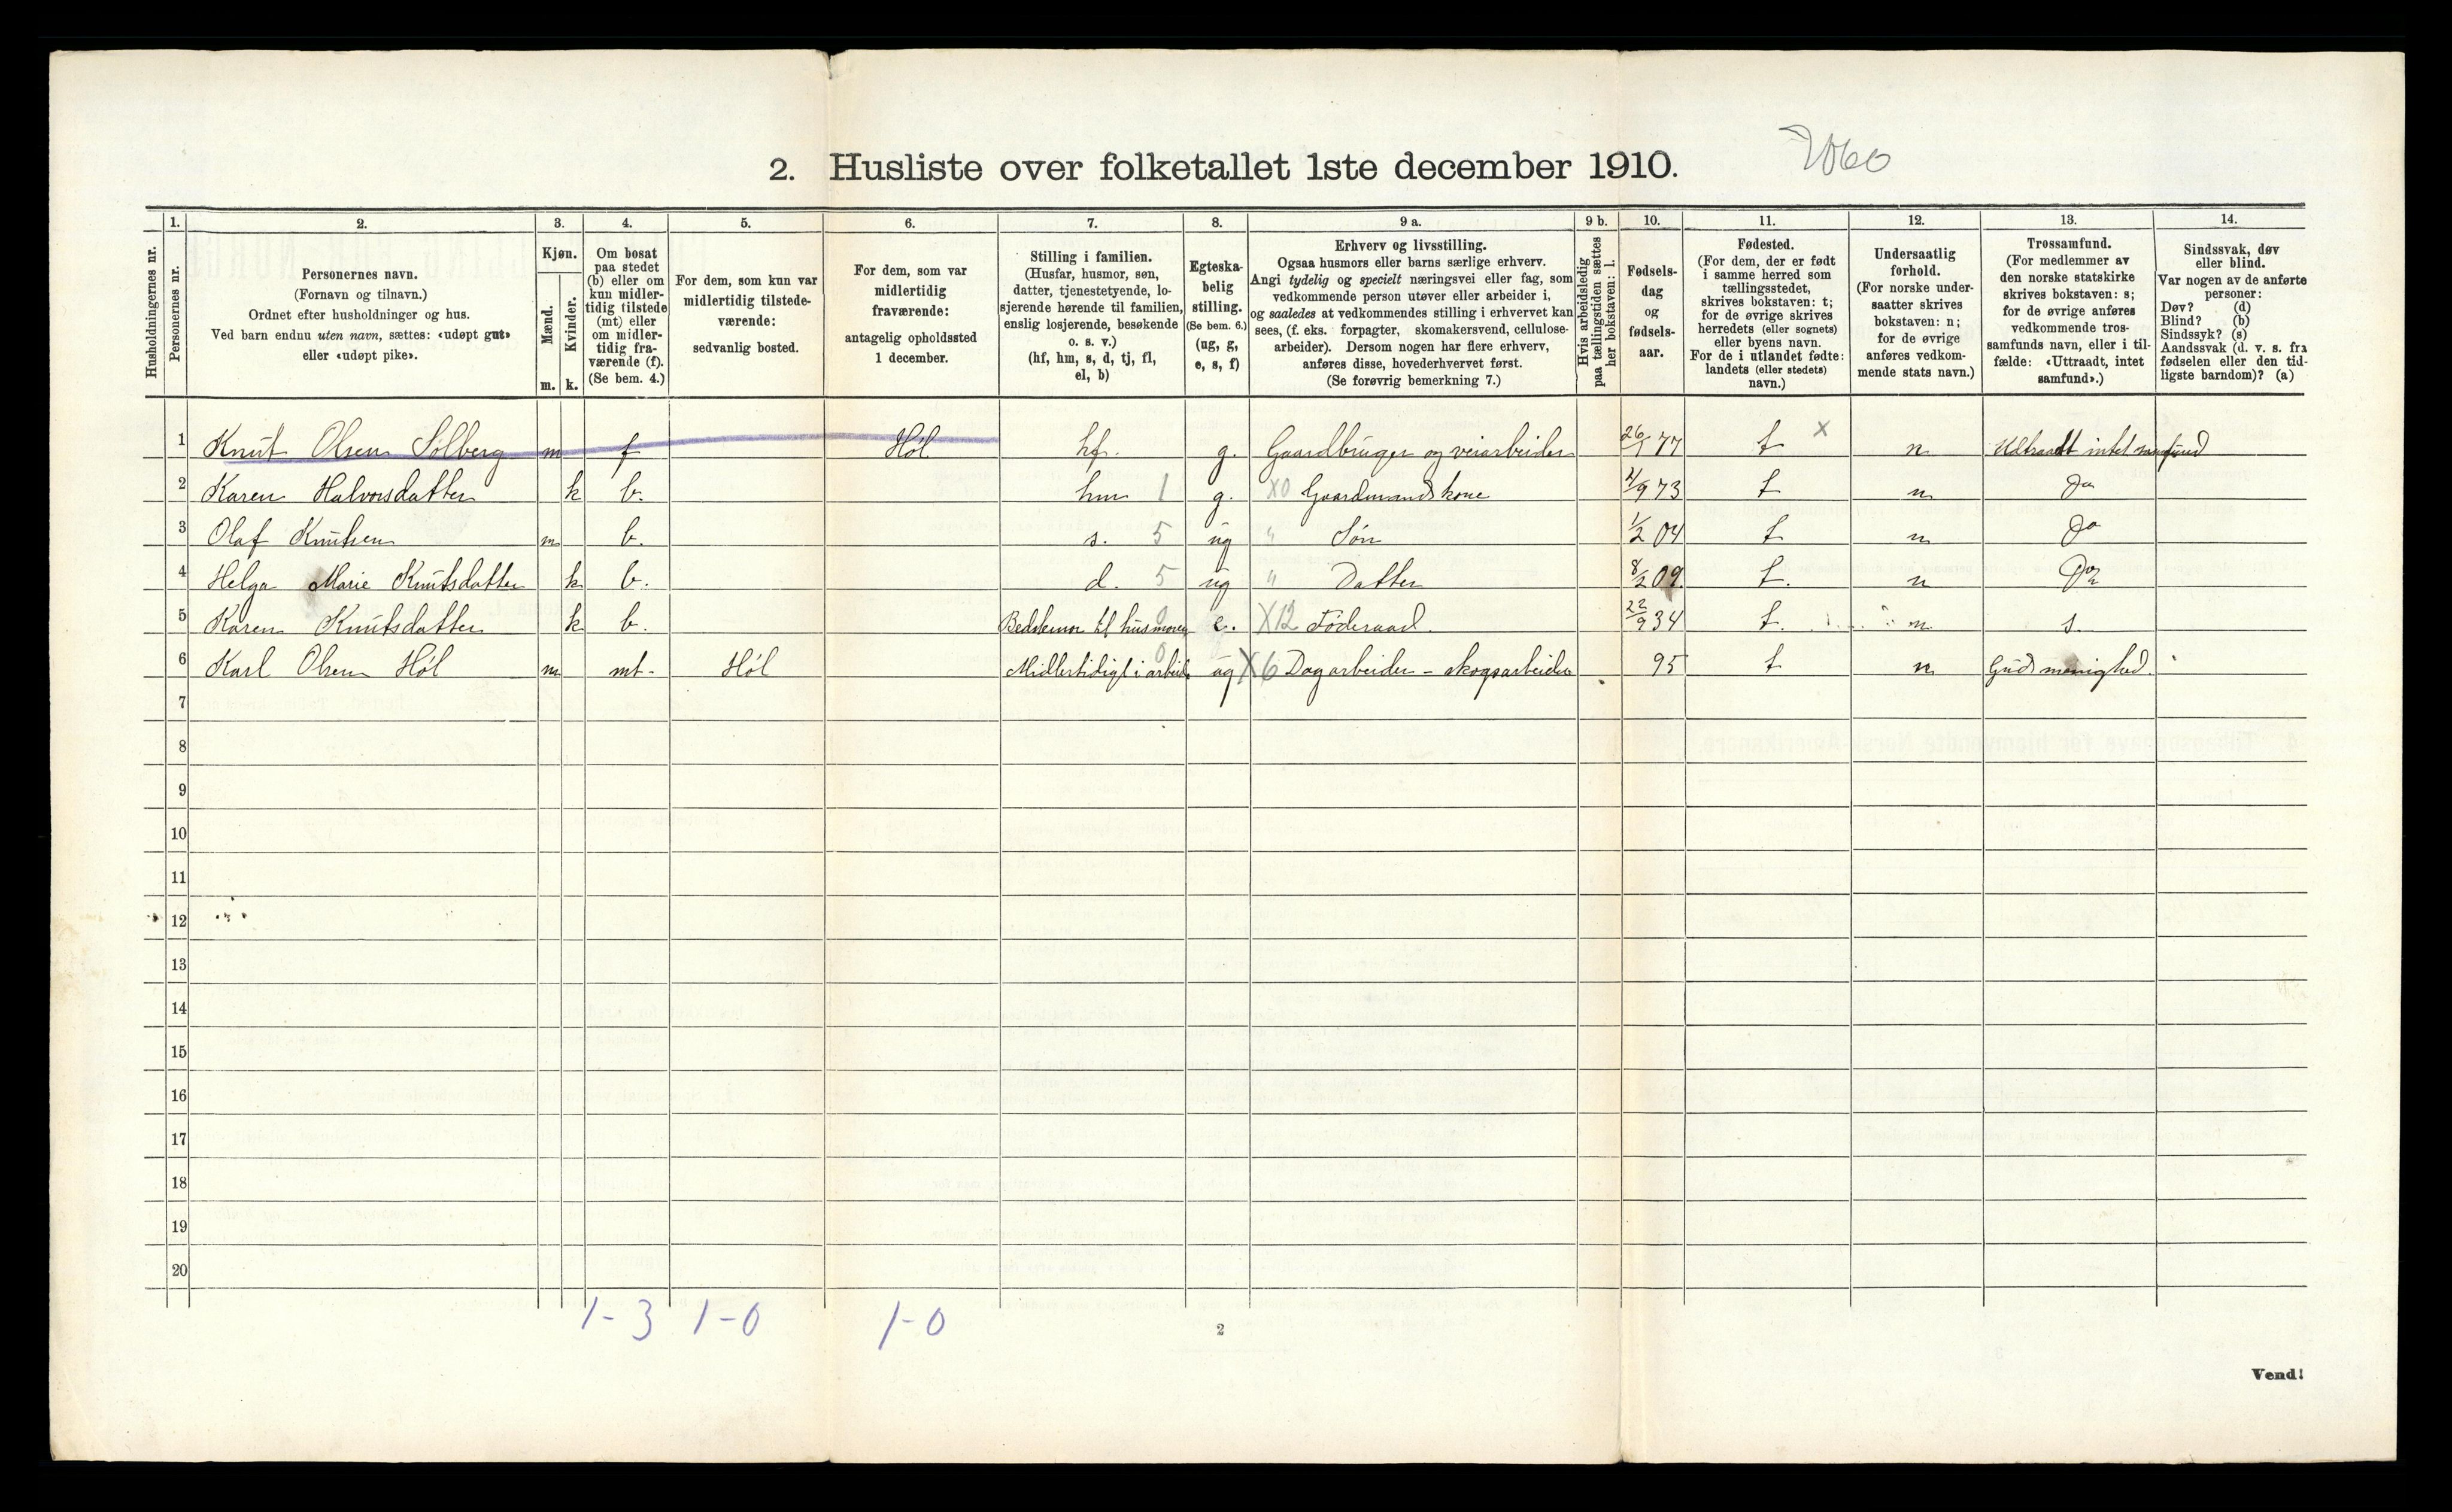 2. Husliste over folketallet 1ste december 1910.
1. 2. 3. 4. 5. 6. 7. 8. 9 a. 9 b. 10. 11. 12. 13. 14.
Husholdningernes nr.
Personernes nr.
Personernes navn.
(Fornavn og tilnavn.)
Ordnet efter husholdninger og hus.
Ved barn endnu uten navn, sættes: «udøpt gut»
eller «udøpt pike».
Kjøn.
Mænd.
Kvinder.
m. k.
Om bosat
paa stedet
(b) eller om
kun midler-
tidig tilstede
(mt) eller
om midler-
tidig fra-
værende (f).
(Se bem. 4.)
For dem, som kun var
midlertidig tilstede-
værende:
sedvanlig bosted.
For dem, som var
midlertidig
fraværende:
antagelig opholdssted
1 december.
Stilling i familien.
(Husfar, husmor, søn,
datter, tjenestetyende, lo-
sjerende hørende til familien,
enslig losjerende, besøkende
o. s. v.)
(hf, hm, s, d, tj, fl,
el, b)
Egteska-
belig
stilling.
(Se bem. 6.)
(ug, g,
e, s, f)
Erhverv og livsstilling.
Ogsaa husmors eller barns særlige erhverv.
Angi tydelig og specielt næringsvei eller fag, som
vedkommende person utøver eller arbeider i,
og saaledes at vedkommendes stilling i erhvervet kan
sees, (f. eks. forpagter, skomakersvend, cellulose-
arbeider). Dersom nogen har flere erhverv,
anføres disse, hovederhvervet først.
(Se forøvrig bemerkning 7.)
Hvis arbeidsledig
paa tællingstiden sættes
her bokstaven: l.
Fødsels-
dag
og
fødsels-
aar.
Fødested.
(For dem, der er født
i samme herred som
tællingsstedet,
skrives bokstaven: t;
for de øvrige skrives
herredets (eller sognets)
eller byens navn.
For de i utlandet fødte:
landets (eller stedets)
navn.)
Undersaatlig
forhold.
(For norske under-
saatter skrives
bokstaven: n;
for de øvrige
anføres vedkom-
mende stats navn.)
Trossamfund.
(For medlemmer av
den norske statskirke
skrives bokstaven: s;
for de øvrige anføres
vedkommende tros-
samfunds navn, eller i til-
fælde: «Uttraadt, intet
samfund».)
Sindssvak, døv
eller blind.
Var nogen av de anførte
personer:
Døv? (d)
Blind? (b)
Sindssyk? (s)
Aandssvak (d. v. s. fra
fødselen eller den tid-
ligste barndom)? (a)
1 Knut Olsen Solberg m f Høl hf. g. Gaardbruger og veiarbeider 26/1 77 t x n Udtraadt intet samfund
2 Karen Halvorsdatter k b. hm 1 g. X0 Gaardmandskone /9 73 t n Do
3 Olaf Knutsen m b. s. 5 ug " Søn 1/2 04 t n Do
4 Helga Marie Knutsdatter k b. d. 5 ug " Datter 8/2 09. t. n Do
5 Karen Knutsdatter k b. Bedstemor til husmoren 0 e. X12 Føderaad. 22/9 34 t. n s.
6 Karl Olsen Høl m mt. Høl Midlertidigt i arbeide 0 ug X6 Dagarbeider - skogsarbeider 95 t n Guds menighed.
7
8
9
10
11
12
13
14
15
16
17
18
19
20
1-3 1-0 1-0
2
Vend!